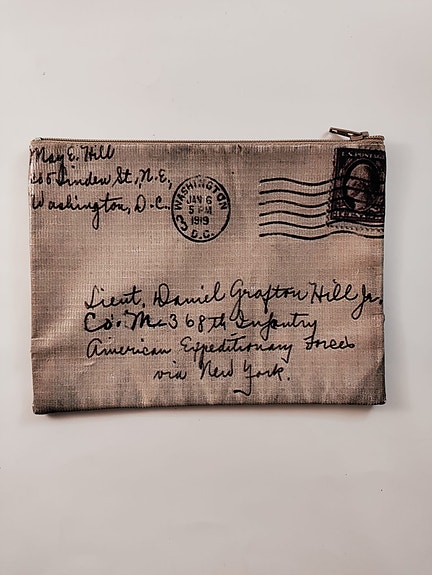 May E. Hill
Linden St., N.E.,
Washington, D.C.
WASHINGTON
JAN 6
5 PM
1919
D.C.
U.S. POSTAGE
Lieut. Daniel Grafton Hill Jr.
Co. M. 368th Infantry
American Expeditionary Forces
via New York.